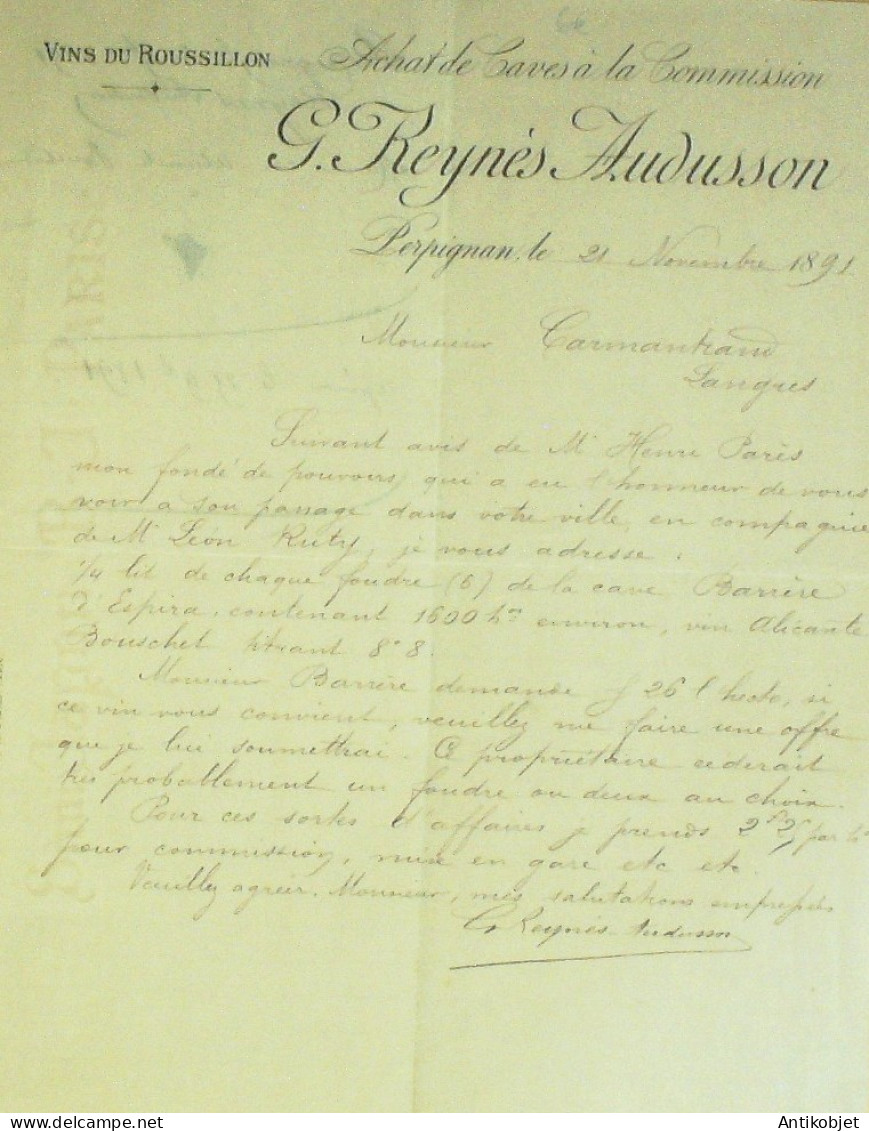 VINS DU ROUSSILLON
Achat de Caves à la Commission
G. Reynès Audusson
Perpignan, le 21 Novembre 1891
Monsieur Carmantrand
Langres
Suivant avis de Mr Henri Parès
mon fondé de pouvoirs, qui a eu l'honneur de vous
voir a son passage dans votre ville, en compagnie
de Mr Léon Ruty, je vous adresse :
1/4 lit de chaque foudre (6) de la cave Barrère
d'Espira, contenant 1600 hos environ, vin Alicante
Bouschet titrant 8°8.
Monsieur Barrère demande f 26 l'hecto, si
ce vin vous convient, veuillez me faire une offre
que je lui soumettrai. Ce propriétaire cèderait
très probablement un foudre ou deux au choix.
Pour ces sortes d'affaires je prends 2f25 par ho
pour commission, mise en gare etc etc.
Veuillez agréer, Monsieur, mes salutations empressées
G Reynès Audusson
PARIS
Antikobjet